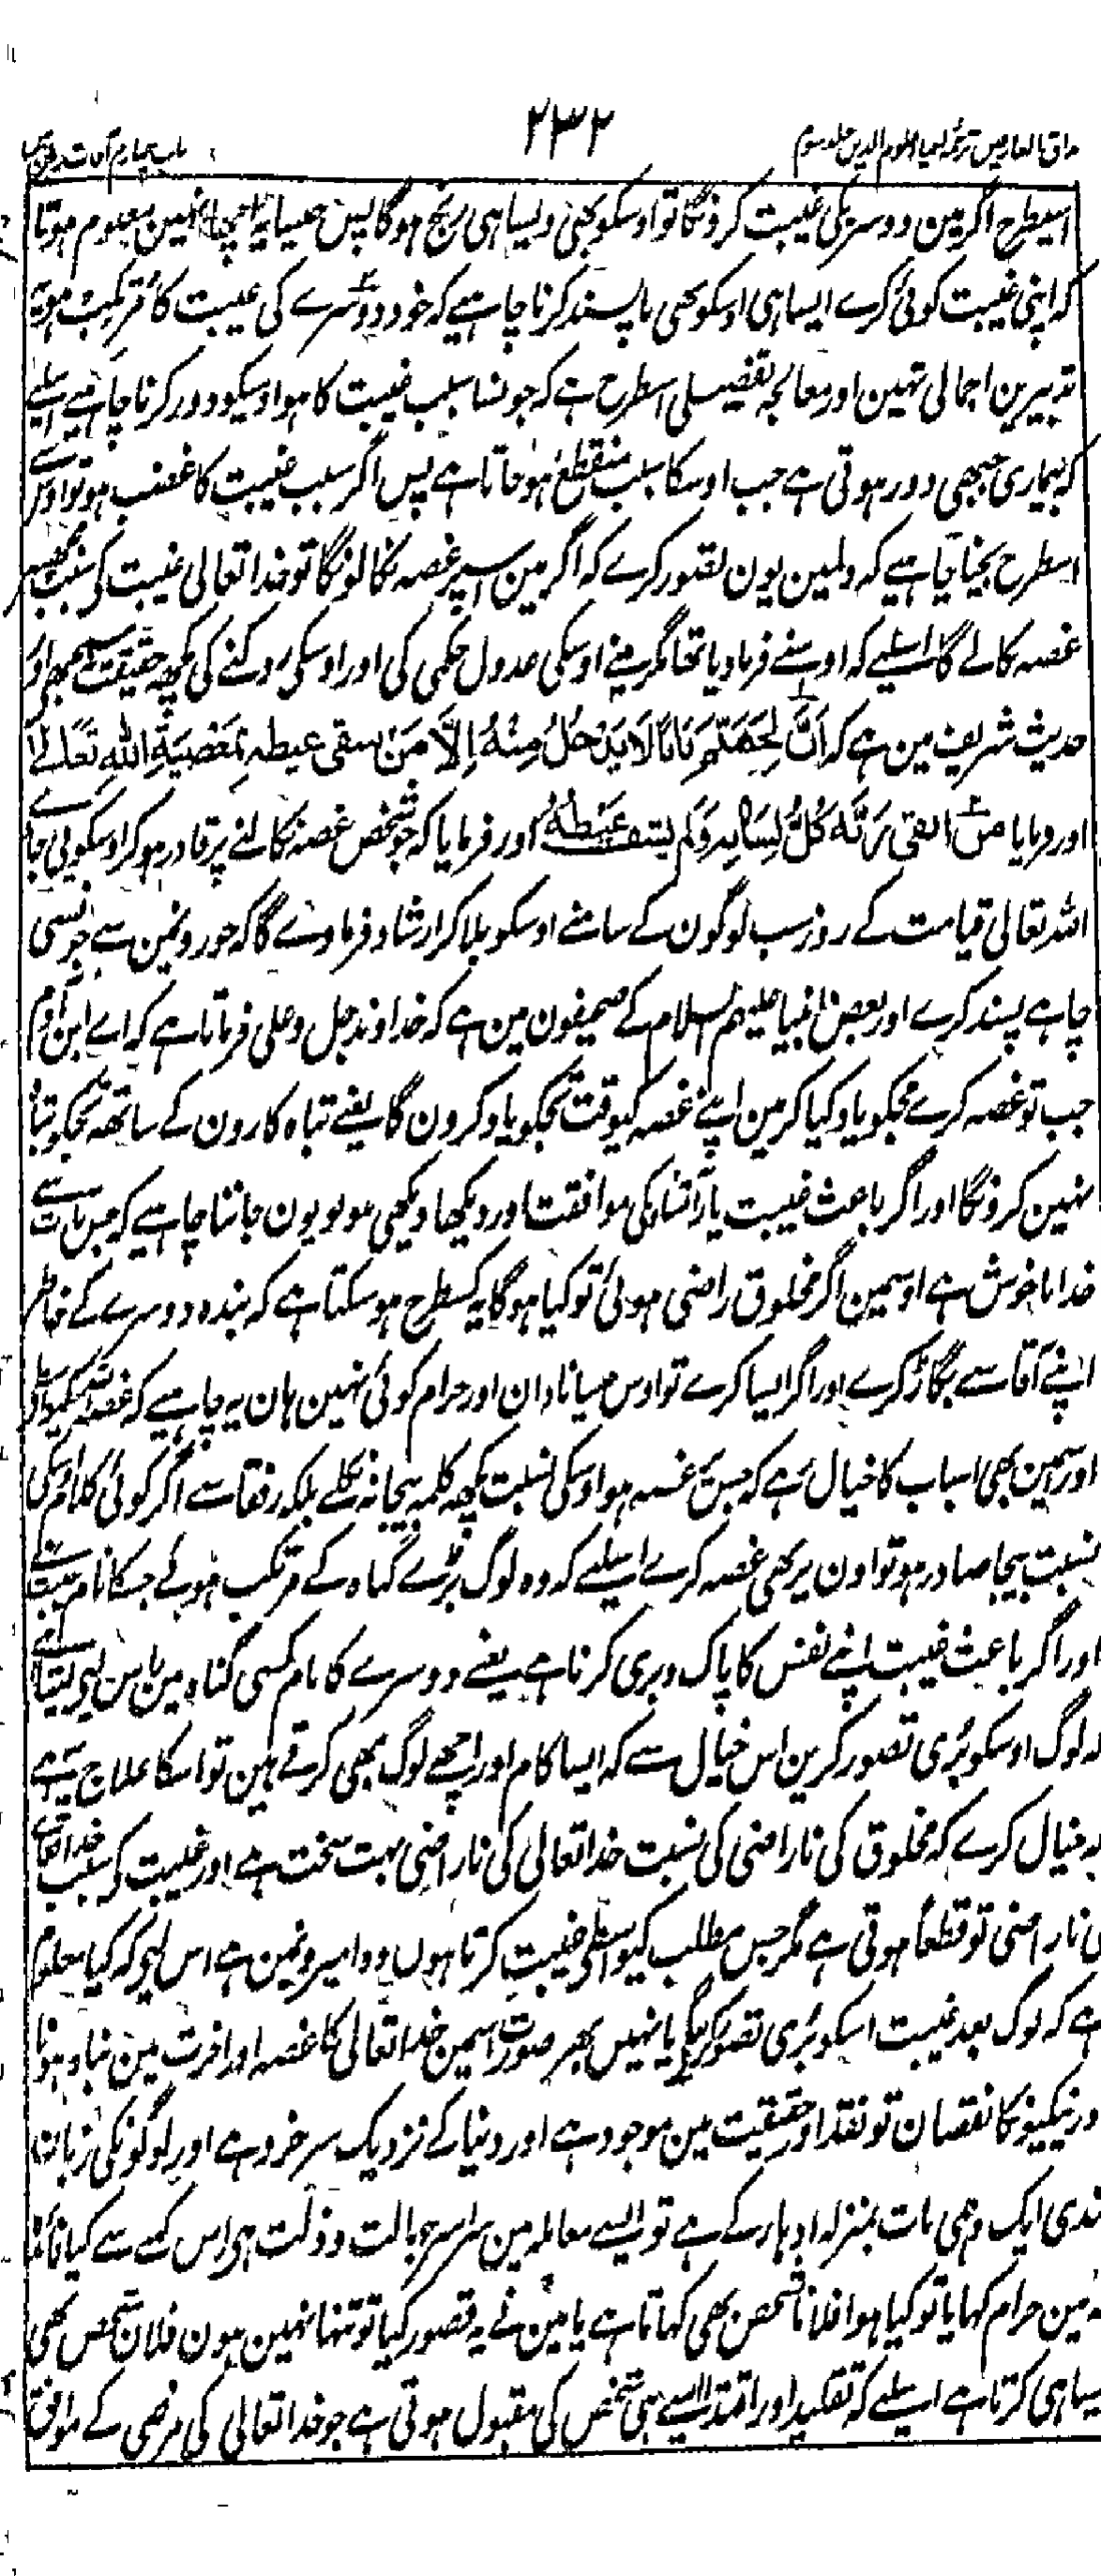 ۲۳۲
مذاق العارفین ترجمہ احیاء علوم الدین جلد سوم
باب چہارم آفات زبان
اسیطرح اگر مین دوسریکی غیبت کرونگا تو اوسکو بھی ویسا ہی رنج ہوگا پس جیسا یہ اچھا نہین معلوم ہوتا
کہ اپنی غیبت کوئی کرے ایسا ہی اوسکو بھی ناپسند کرنا چاہیے کہ خود دوسرے کی غیبت کا مرتکب ہو یہ
تدبیرین اجمالی تہین اور معالجہ تفصیلی اسطرح ہے کہ جونسا سبب غیبت کا ہو اوسیکو دور کرنا چاہیے اسلیے
کہ بیماری جبھی دور ہوتی ہے جب اوسکا سبب منقطع ہو جاتا ہے پس اگر سبب غیبت کا غضب ہو تو اوس سے
اسطرح بچنا چاہیے کہ دلمین یون تصور کرے کہ اگر مین اسپر غصہ نکالونگا تو خدا تعالی غیبت کے سبب مجھپر
غصہ نکالے گا اسلیے کہ اوسنے فرما دیا تھا مگر مینے اوسکی عدول حکمی کی اور اوسکی روکنے کی کچھ حقیقت نسمجھی اور
حدیث شریف مین ہے کہ اَنَّ لِجَهَنَّمَ بَابًا لَا يَدْخُلُ مِنْهُ اِلَّا مَنْ سقى غيظه بِمَعْصِيَةِ اللهِ تَعَالے
اور فرمایا من اتقى رَبَّه كَلَّ لِسَانه وَلَم يشف غَيْظَهُ اور فرمایا کہ جو شخص غصہ نکالنے پر قادر ہو کر اوسکو پی جاوے
اللہ تعالی قیامت کے روز سب لوگون کے سامنے اوسکو بلا کر ارشاد فرماوے گا کہ حورونمین سے جونسی
چاہے پسند کرے اور بعض انبیا علیہم السلام کے صحیفون مین ہے کہ خداوند جل وعلی فرماتا ہے کہ اے ابن آدم
جب تو غصہ کرے مجکو یاد کیا کر مین اپنے غصہ کیوقت تجکو یاد کرون گا یعنے تباہ کارون کے ساتھ تجکو تباہ
نہین کرونگا اور اگر باعث غیبت یار آشنا کی موافقت اور دیکھا دیکھی ہو تو یون جاننا چاہیے کہ جس بات سے
خدا ناخوش ہے اوسمین اگر مخلوق راضی ہوئی تو کیا ہوگا یہ کسطرح ہو سکتا ہے کہ بندہ دوسرے کے خاطر
اپنے آقا سے بگاڑ کرے اور اگر ایسا کرے تو اوس جیسا نادان اور حرام کوئی نہین ہان یہ چاہیے کہ غصہ
اور اسمین بھی اسباب کا خیال رہے کہ جس پر غصہ ہو اوسکی نسبت کچھ کلمہ بیجا نہ نکلے بلکہ رفقا سے اگر کوئی کلام اوسکی
نسبت بیجا صادر ہو تو اون پر بھی غصہ کرے اسلیے کہ وہ لوگ بڑے گناہ کے مرتکب ہوئے جسکا نام غیبت ہے
اور اگر باعث غیبت اپنے نفس کا پاک و بری کرنا ہے یعنے دوسرے کا نام کسی گناہ مین اس لیے لیتا ہے
کہ لوگ اوسکو بری تصور کرین اس خیال سے کہ ایسا کام اور اچھے لوگ بھی کرتے ہین تو اسکا علاج یہ ہے
کہ خیال کرے کہ مخلوق کی ناراضی کی نسبت خدا تعالی کی ناراضی بہت سخت ہے اور غیبت کے سبب خدا تعالے
کی ناراضی تو قطعاً ہوتی ہے مگر جس مطلب کیواسطے غیبت کرتا ہوں وہ امید و بیم مین ہے اس لیے کہ کیا معلوم
ہے کہ لوگ بعد غیبت اسکو بری تصور کرینگے یا نہین بہر صورت اسمین خدا تعالی کا غصہ اور آخرت مین تباہ ہونا
اور نیکیونکا نقصان تو نقد اور حقیقت مین موجود ہے اور دنیا کے نزدیک سرخرو ہے اور لوگونکی زبان
بندی ایک وہمی بات بمنزلہ ادہار کے ہے تو ایسے معاملہ مین سراسر جہالت و ذلت ہی اس کہنے سے کیا فائدہ
کہ مین حرام کہایا تو کیا ہوا فلانا شخص بھی کہاتا ہے یا مین نے یہ قصور کیا تو تنہا نہین ہون فلان شخص بھی
ایسا ہی کرتا ہے اسلیے کہ تقلید اور اقتدا ایسے ہی شخص کی مقبول ہوتی ہے جو خدا تعالی کی مرضی کے موافق